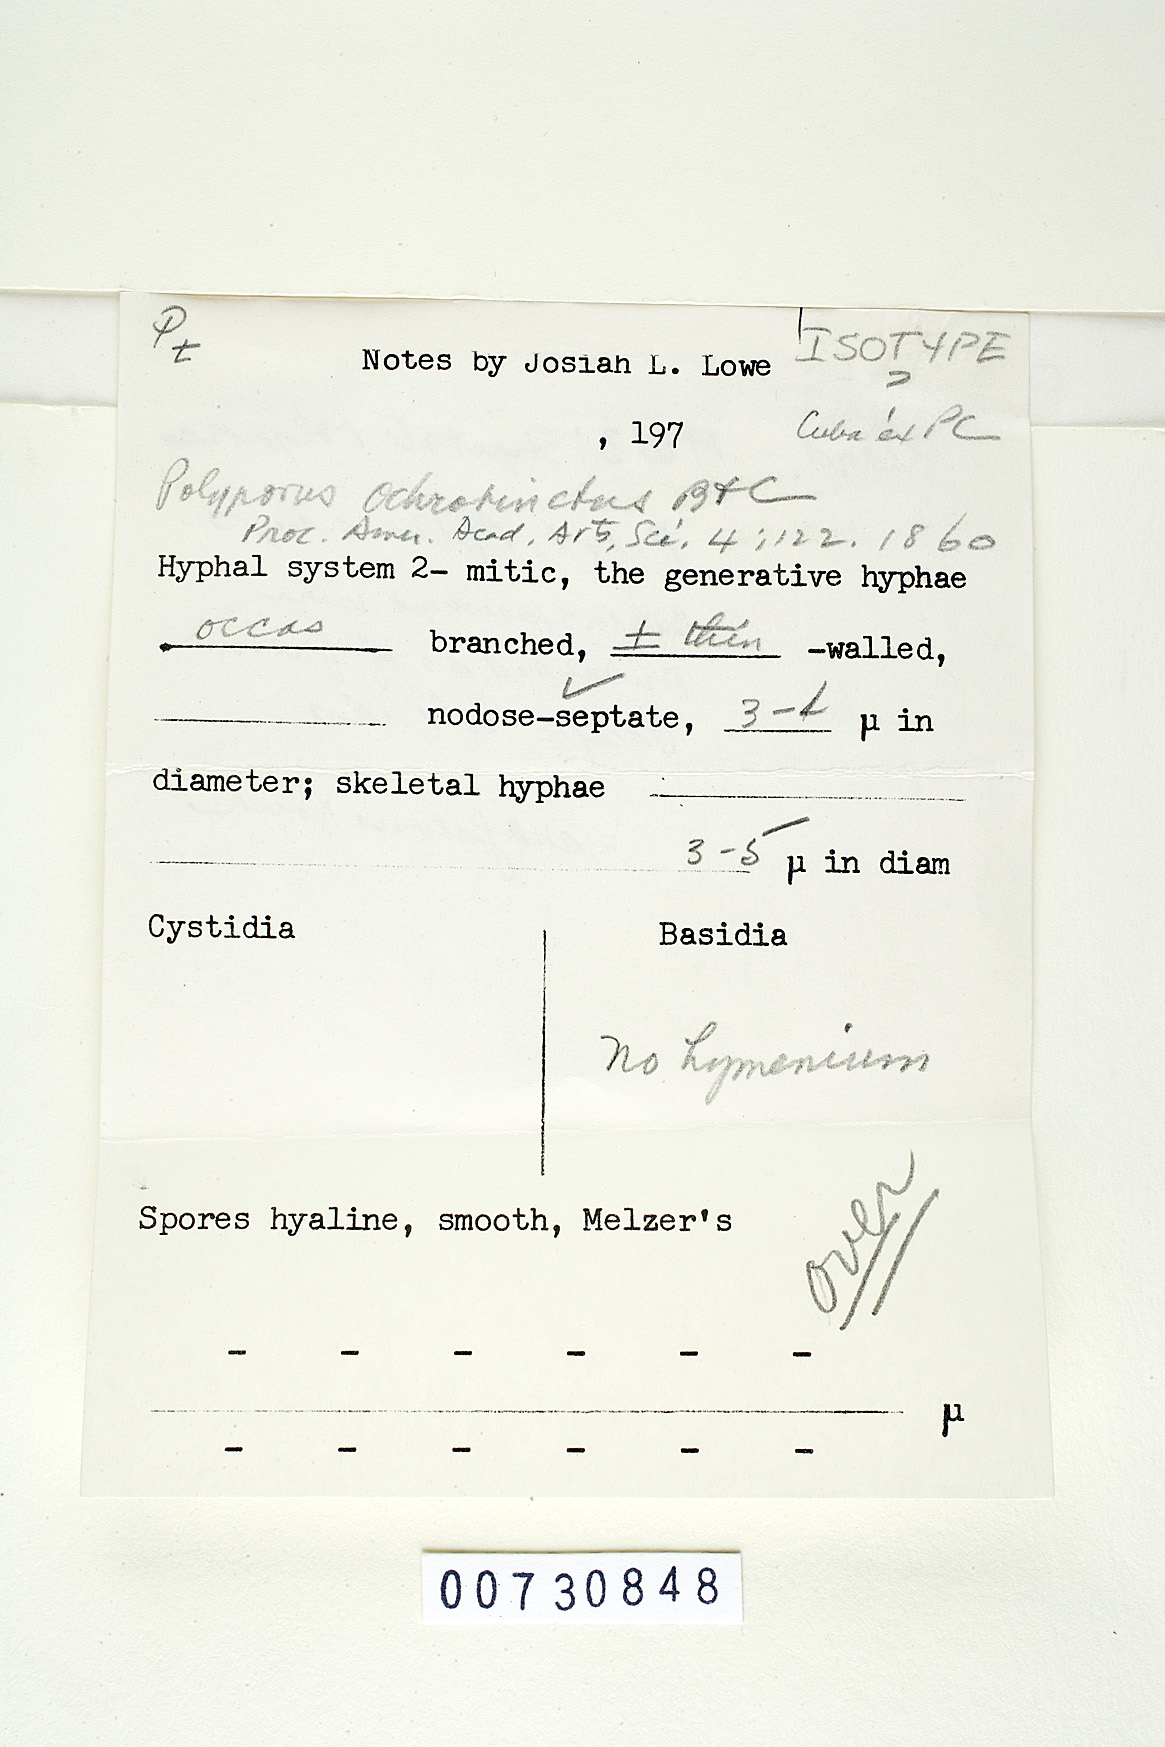 Pt
ISOTYPE
Notes by Josiah L. Lowe
?
, 197
Cuba ex PC
Polyporus ochrotinctus B+C
Proc. Amer. Acad. Arts, Sci. 4:122. 1860
Hyphal system 2- mitic, the generative hyphae
occas branched, ± thin -walled,
✓
nodose-septate, 3-4 µ in
diameter; skeletal hyphae
3-5 µ in diam
Cystidia
Basidia
No hymenium
Spores hyaline, smooth, Melzer's
over
- - - - - -
µ
- - - - - -
00730848